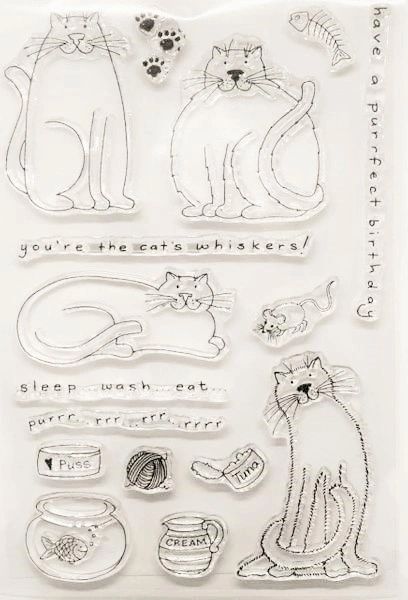 have a purrfect birthday
you're the cat's whiskers!
sleep...wash...eat...
purrr...rrr...rrr...rrrr
Puss
Tuna
CREAM